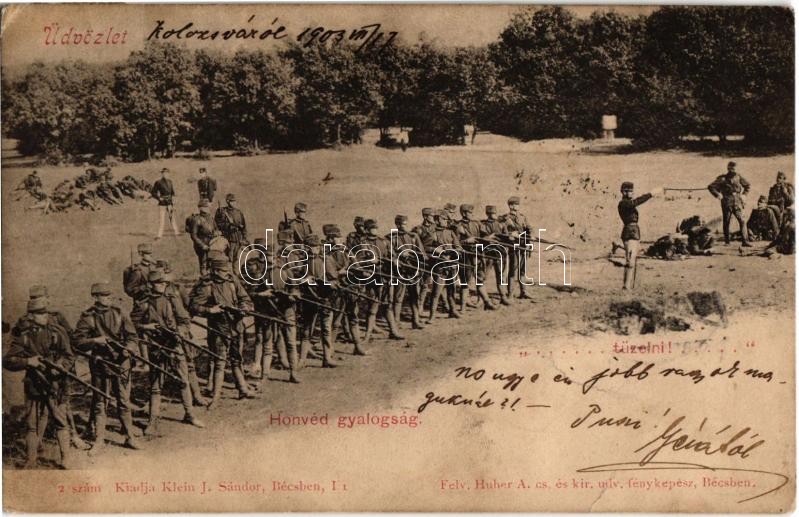 Üdvözlet Kolozsváról 1903 VIII/17
darabanth
„. . . . . . . tüzelni! . . . . . “
no ugye én jobb vagyok ma-
guknál?! —
Honvéd gyalogság.
Puszi!
Gézától
2 szám Kiadja Klein J. Sándor, Bécsben, I/1
Felv. Huber A. cs. és kir. udv. fényképész, Bécsben.